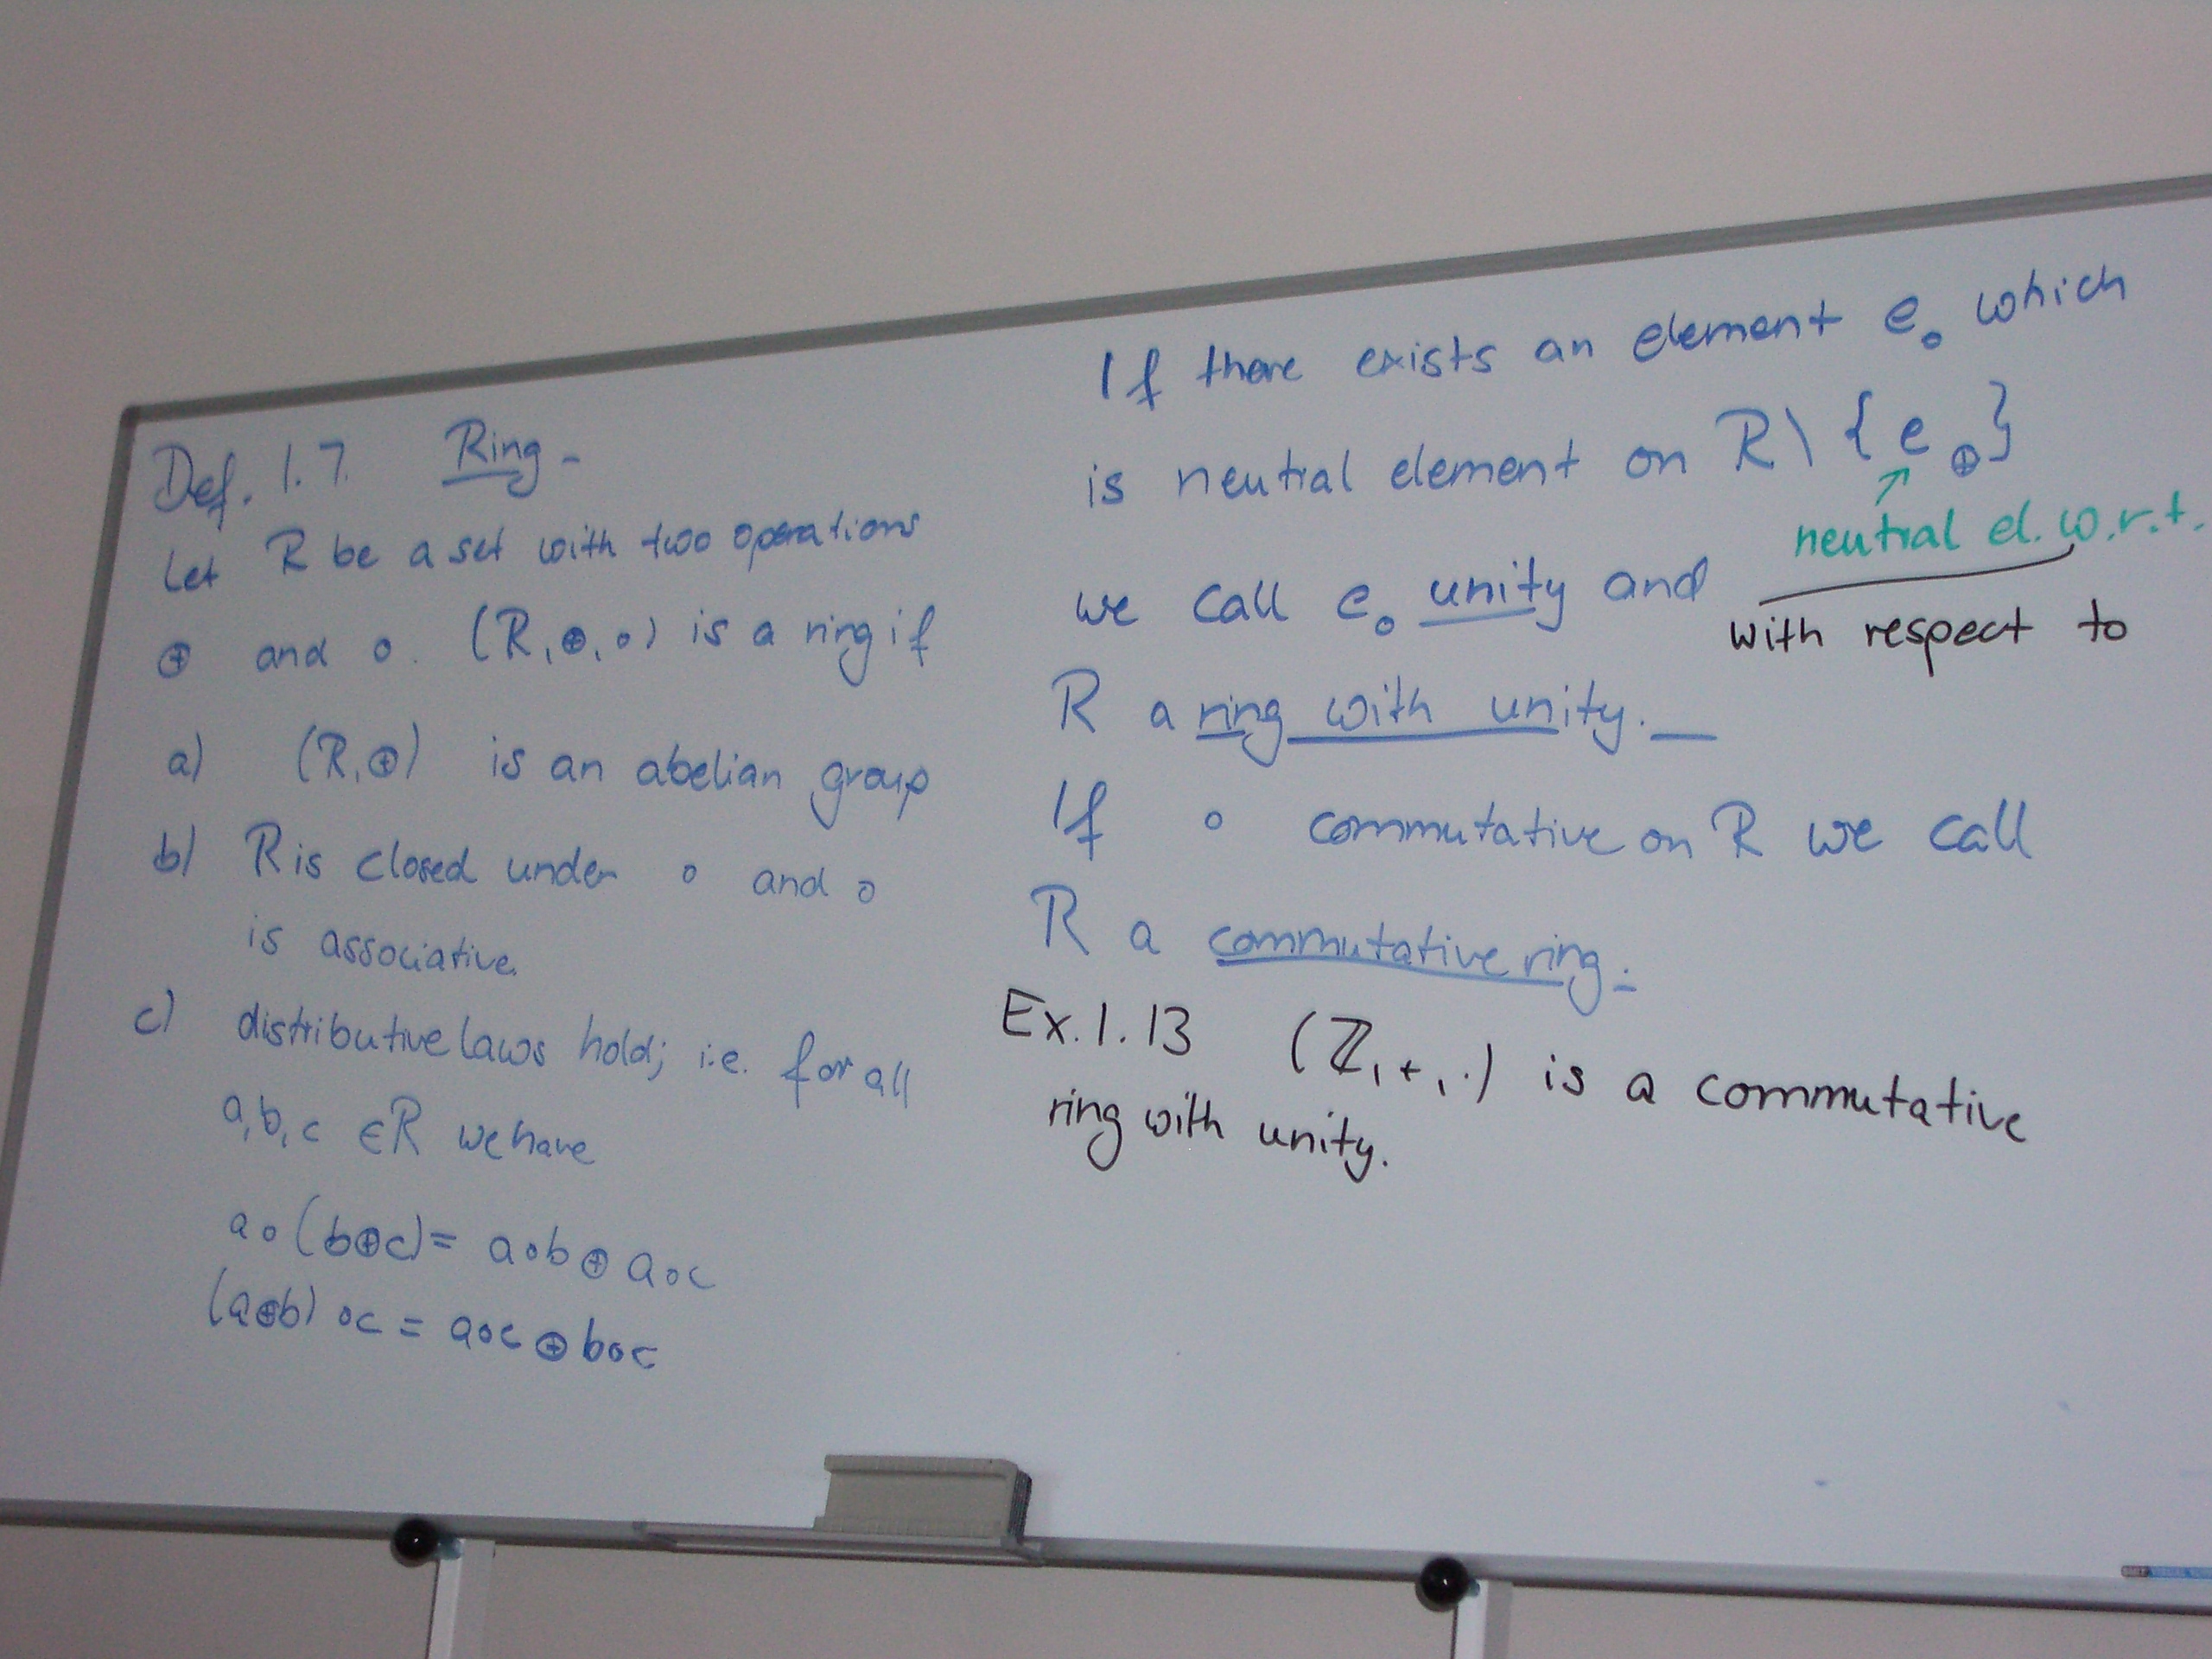 Def. 1.7. Ring
Let R be a set with two operations
⊕ and ∘. (R,⊕,∘) is a ring if
a) (R,⊕) is an abelian group
b) R is closed under ∘ and ∘
is associative.
c) distributive laws hold; i.e. for all
a,b,c ∈R we have
a∘(b⊕c)= a∘b⊕a∘c
(a⊕b)∘c = a∘c⊕b∘c
If there exists an element e∘ which
is neutral element on R\{e⊕}
neutral el. w.r.t.
we call e∘ unity and
with respect to
R a ring with unity.
If ∘ commutative on R we call
R a commutative ring.
Ex.1.13 (ℤ,+,·) is a commutative
ring with unity.